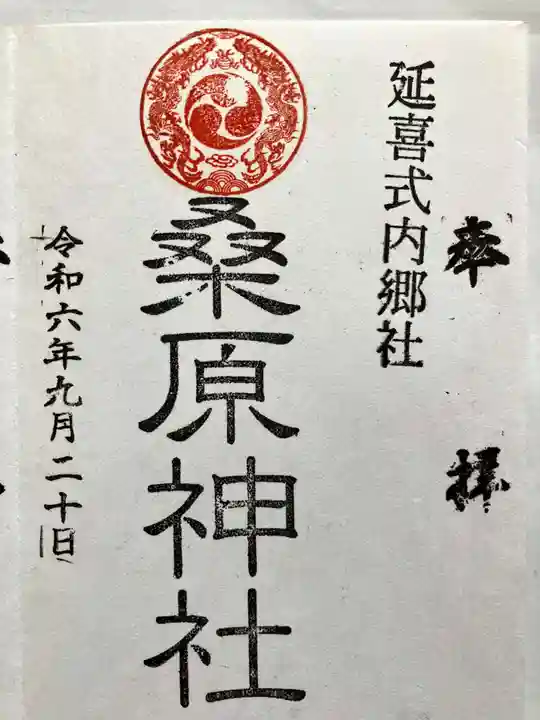 奉拝
延喜式内郷社
桑原神社
令和六年九月二十日